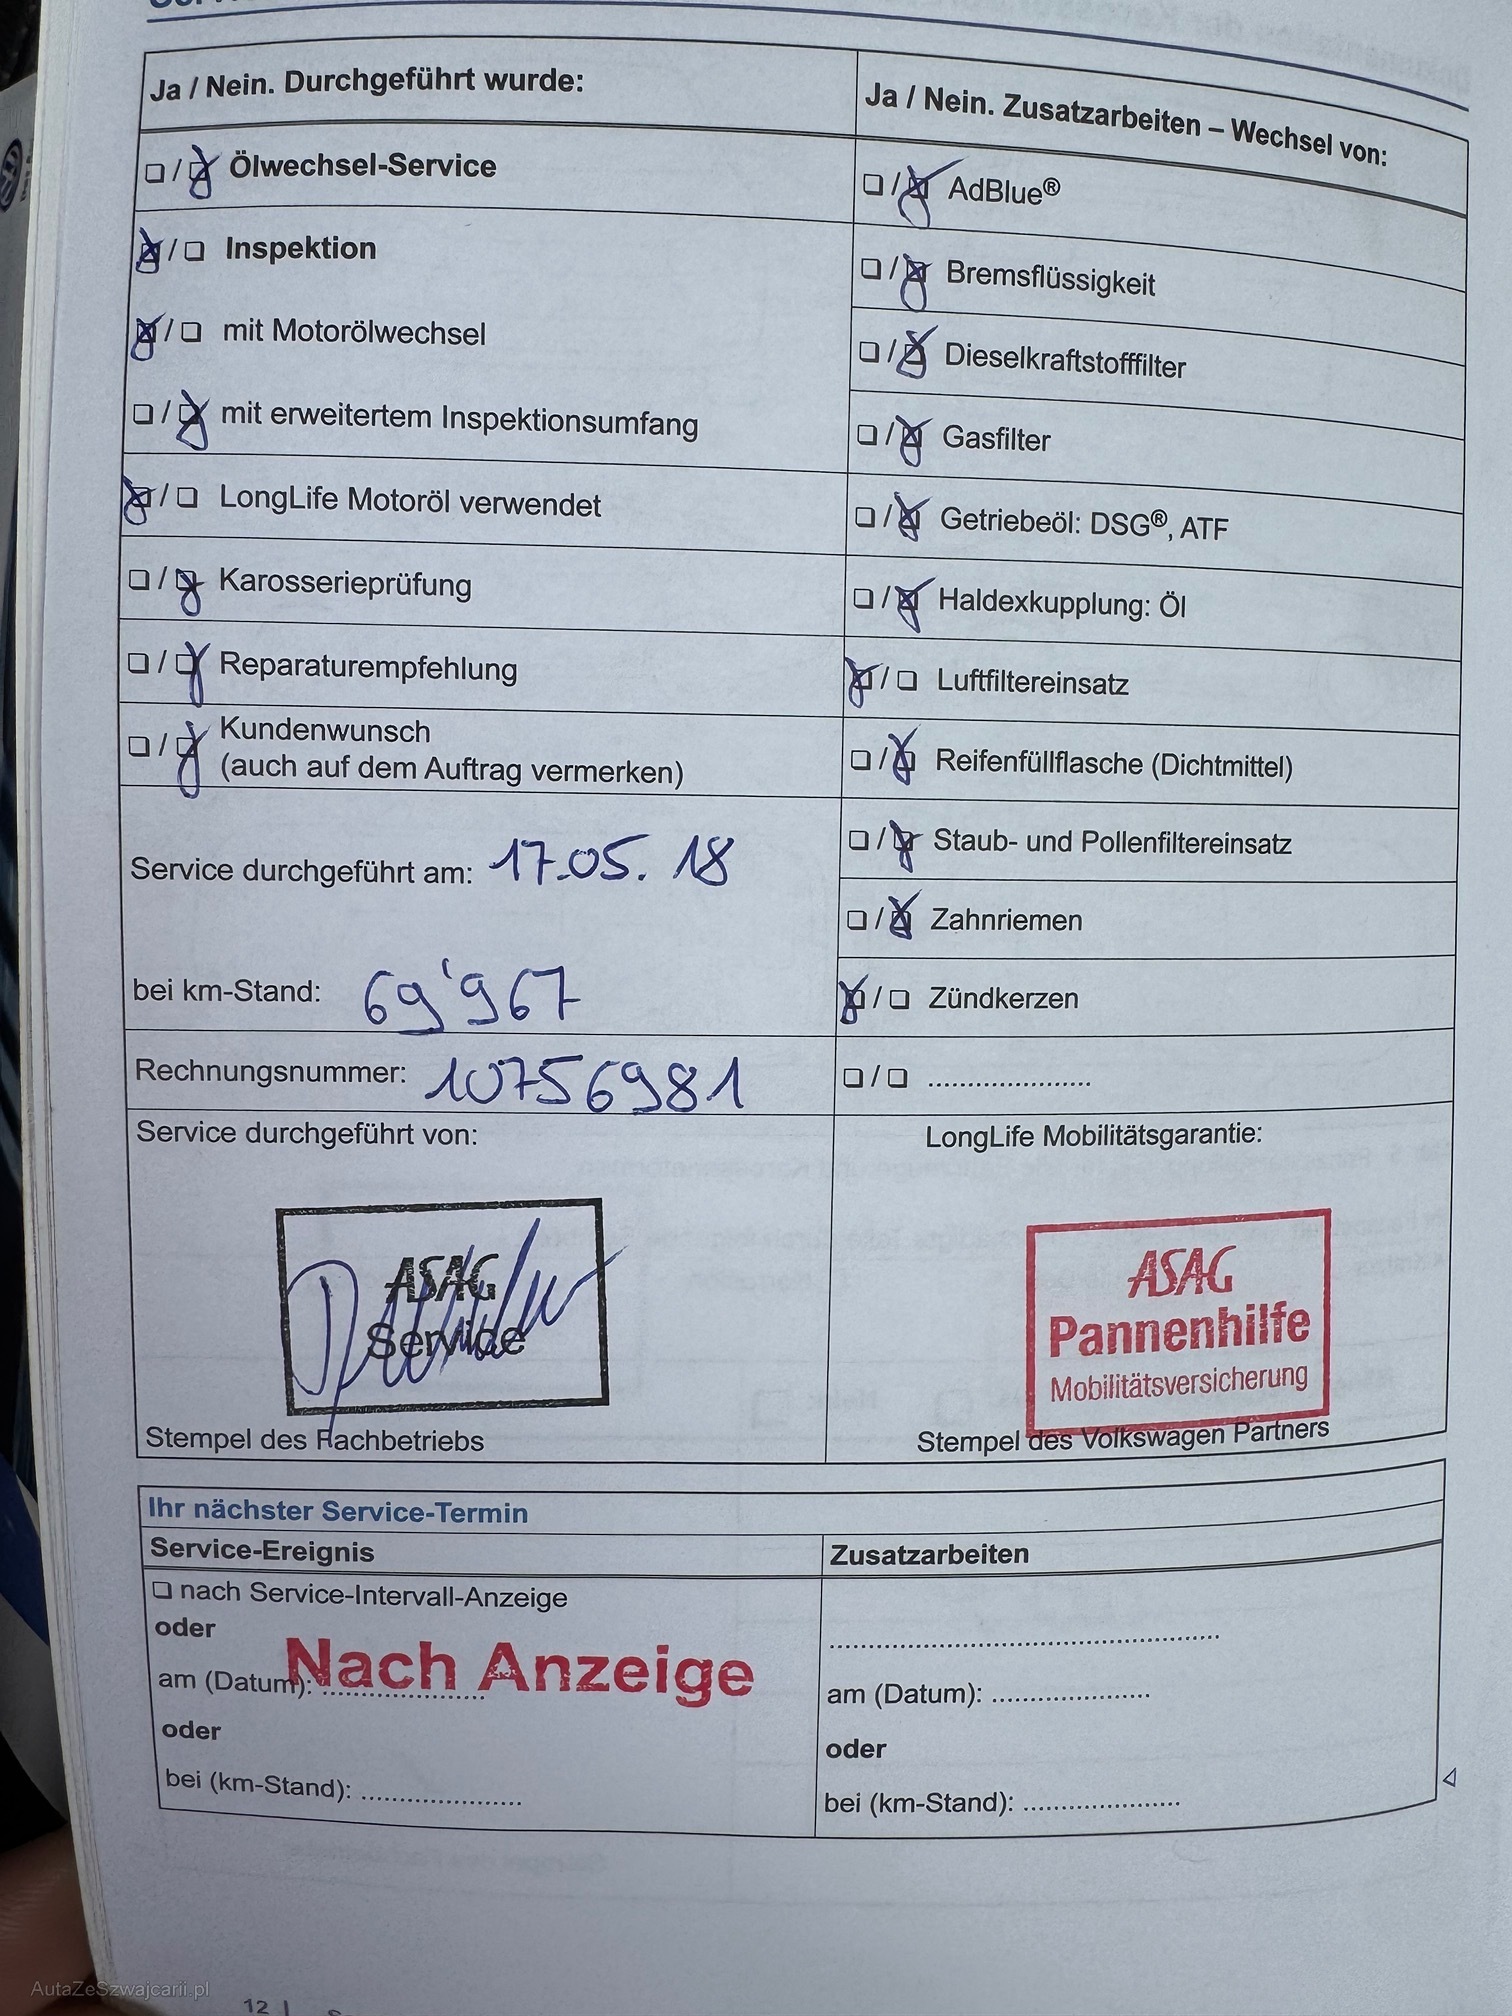 Ja / Nein. Durchgeführt wurde:
❏ / ❏ Ölwechsel-Service
❏ / ❏ Inspektion
❏ / ❏ mit Motorölwechsel
❏ / ❏ mit erweitertem Inspektionsumfang
❏ / ❏ LongLife Motoröl verwendet
❏ / ❏ Karosserieprüfung
❏ / ❏ Reparaturempfehlung
❏ / ❏ Kundenwunsch
(auch auf dem Auftrag vermerken)
Service durchgeführt am: 17.05.18
bei km-Stand: 69'967
Rechnungsnummer: 10756981
Service durchgeführt von:
ASAG
Service
Stempel des Fachbetriebs
Ja / Nein. Zusatzarbeiten – Wechsel von:
❏ / ❏ AdBlue®
❏ / ❏ Bremsflüssigkeit
❏ / ❏ Dieselkraftstofffilter
❏ / ❏ Gasfilter
❏ / ❏ Getriebeöl: DSG®, ATF
❏ / ❏ Haldexkupplung: Öl
❏ / ❏ Luftfiltereinsatz
❏ / ❏ Reifenfüllflasche (Dichtmittel)
❏ / ❏ Staub- und Pollenfiltereinsatz
❏ / ❏ Zahnriemen
❏ / ❏ Zündkerzen
❏ / ❏ .....................
LongLife Mobilitätsgarantie:
ASAG
Pannenhilfe
Mobilitätsversicherung
Stempel des Volkswagen Partners
Ihr nächster Service-Termin
Service-Ereignis
❏ nach Service-Intervall-Anzeige
oder
Nach Anzeige
am (Datum): .....................
oder
bei (km-Stand): .....................
Zusatzarbeiten
..................................................
am (Datum): .....................
oder
bei (km-Stand): .....................
AutaZeSzwajcarii.pl
12 |